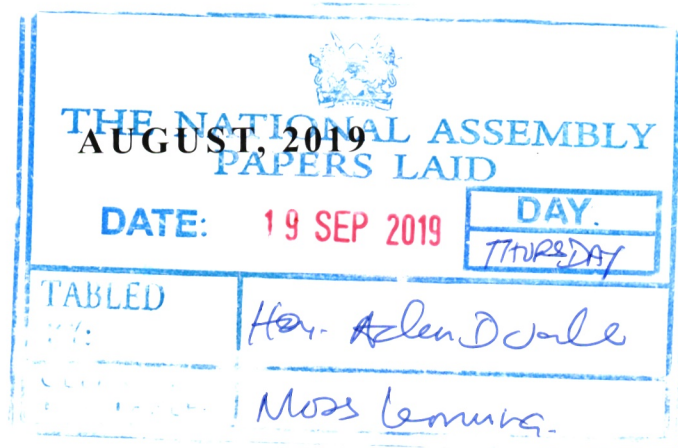 THE NATIONAL ASSEMBLY
AUGUST, 2019
PAPERS LAID
DATE: 19 SEP 2019
DAY.
THURSDAY
TABLED
BY:
Hon. Aden Duale
Moses Lemuna.